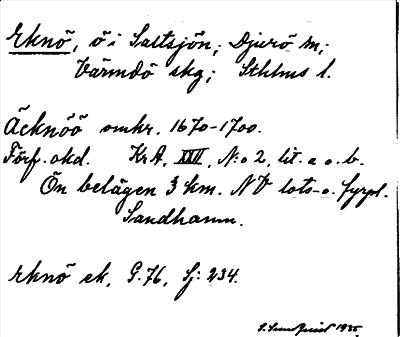 Eknö, ö i Saltsjön; Djurö sn;
Värmdö skg; Sthlms l.
Äcknöö omkr. 1670-1700.
Förf. okd. KrA, XXVI, N:o 2, lit. a o. b.
Ön belägen 3 km. NV lots- o. fyrpl.
Sandhamn.
Eknö ek. G. 76, Sj: 234.
1935